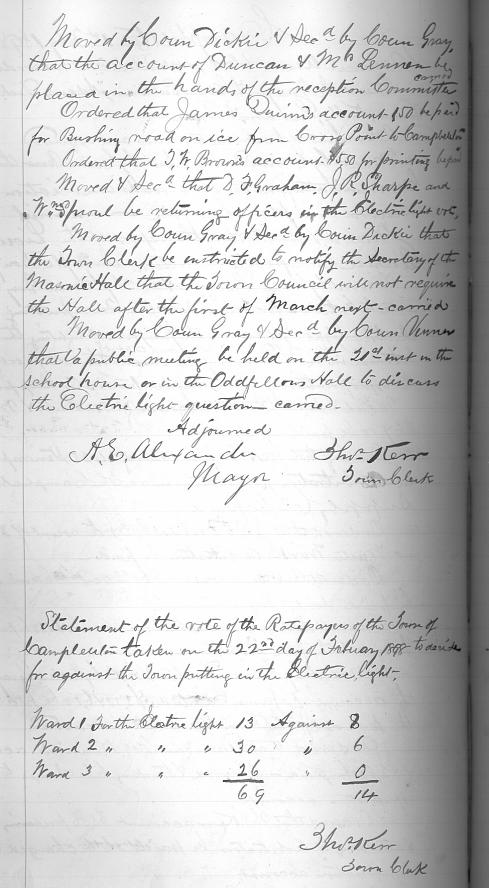 Moved by Coun Dickie & Secd by Coun Gray,
that the account of Duncan & McLennan be
carried
placed in the hands of the reception Committee
Ordered that James Quinn's account $50 be paid
for Bushing road on ice from Cross Point to Campbellton
Ordered that T. W. Brown's account $5.50 for printing be paid
Moved & Secd that D. F. Graham, J. R. Sharpe and
Wm Sproul be returning officers in the Electric light vote,
Moved by Coun Gray, & Secd by Coun Dickie that
the Town Clerk be instructed to notify the Secretary of the
Masonic Hall that the Town Council will not require
the Hall after the first of March next - carried
Moved by Coun Gray & Secd by Coun Venner
that a public meeting be held on the inst in the
school house or in the Oddfellows Hall to discuss
the Electric light question carried.
Adjourned
A. E. Alexander
Mayor
Thos. Kerr
Town Clerk
Statement of the vote of the Ratepayers of the Town of
Campbellton taken on the 22nd day of February to decide
for against the Town putting in the Electric light.
Ward 1 For the Electric light 13 Against 8
Ward 2 " " " 30 " 6
Ward 3 " " " 26 " 0
69 14
Thos. Kerr
Town Clerk